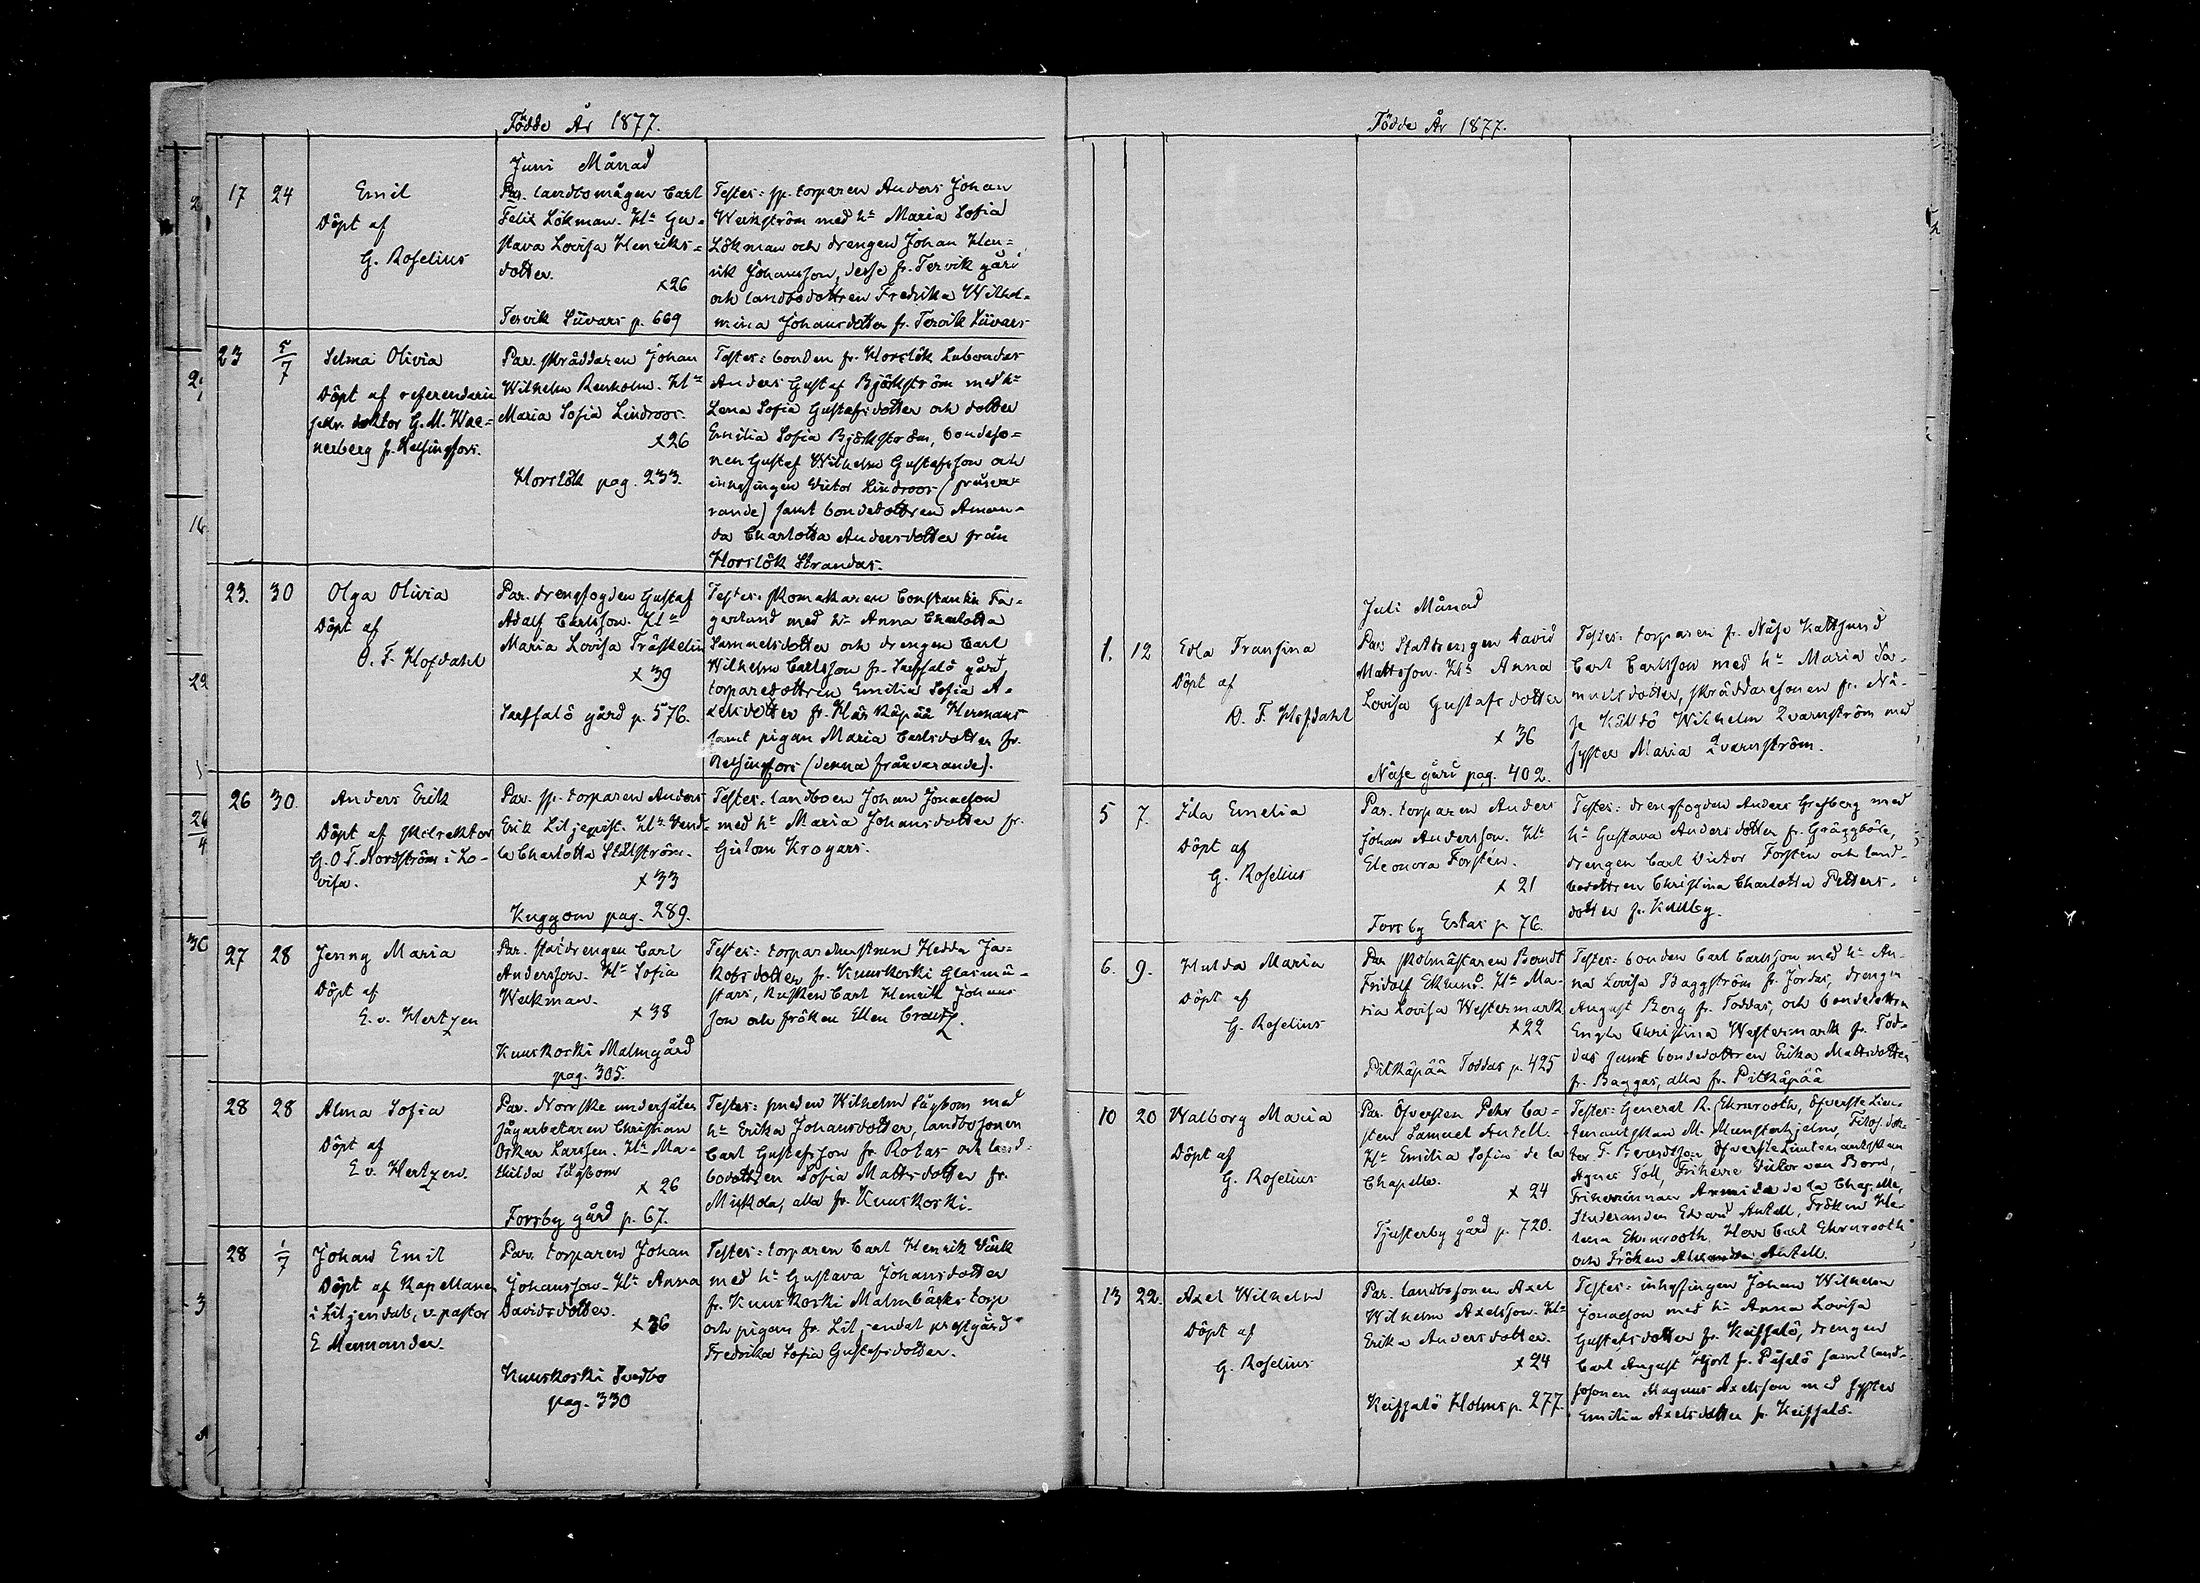 Födde År 1877.
Juni Månad
17 24 Emil
Döpt af
G. Roselius
Par. landbomågen Carl
Felix Lökman. H:u Gu-
stava Lovisa Henriks-
dotter.
x26
Tervik Sävars p. 669
Testes: sp. torparen Anders Johan
Weckström med h:u Maria Sofia
Lökman och drengen Johan Hen-
rik Johansson, desse fr. Tervik gård
och landbodottren Fredrika Wilhel-
mina Johansdotter fr. Tervik
23 5/7 Selma Olivia
Döpt af referendarie
doktor G. M. Wae-
nerberg fr. Helsingfors.
Par. skräddaren Johan
Wilhelm Renholm. H:u
Maria Sofia Lindroos.
x26
Horslök pag. 233.
Testes: bonden fr. Horslök Labondas
Anders Gustaf Björkström med h:u
Lena Sofia Gustafsdotter och dotter
Emilia Sofia Björkström, bondeso-
nen Gustaf Wilhelm Gustafsson och
inhysingen Victor Lindroos (frånva-
rande) samt bondedottren Aman-
da Charlotta Andersdotter från
Horslök Strandas.
23. 30 Olga Olivia
Döpt af
O. F. Hofdahl
Par. drengfogden Gustaf
Adolf Carlsson. H:u
Maria Lovisa Träskelin
x39
Sarfsalö gård p. 576.
Testes: skomakaren Constantin Fa-
gerlund med h:u Anna Charlotta
Samuelsdotter och drengen Carl
Wilhelm Carlsson fr. Sarfsalö gård,
torparedottren Emilia Sofia A-
xelsdotter fr. Härkäpää Hermans
samt pigan Maria Carlsdotter fr.
Helsingfors (denna frånvarande).
26 30. Anders Erik
Döpt af skolrektor
G. O. F. Nordström i Lo-
visa.
Par. sp. torparen Anders
Erik Liljeqvist. H:u Vend-
la Charlotta Stålström.
x33
Kuggom pag. 289.
Testes: landboen Johan Jonasson
med h:u Maria Johansdotter fr.
Gislom Krogars.
27 28 Jenny Maria
Döpt af
E. v. Hertzen
Par. statdrengen Carl
Andersson. H:u Sofia
Wekman.
x38
Kuuskoski Malmgård
pag. 305.
Testes: torparehustrun Hedda Ja-
kobsdotter fr. Kuuskoski Glasmä-
stars, kusken Carl Henrik Johans
son och fröken Ellen Creutz.
28 28 Alma Sofia
Döpt af
E v. Hertzen.
Par. Norrske undersåten
sågarbetaren Christian
Oskar Larssen. H:u Ma-
thilda Sågbom
x 26
Forsby gård p. 67.
Testes: smeden Wilhelm Sågbom med
h:u Erika Johansdotter, landbosonen
Carl Gustafsson fr. Rotas och land-
bodottren Sofia Mattsdotter fr.
Miskola, alla fr. Kuuskoski.
28 1/7 Johan Emil
Döpt af Kapellanen
i Liljendal, v. pastor
E Mennander.
Par. torparen Johan
Johansson. H:u Anna
Davidsdotter.
x36
Kuuskoski Svedbo
pag. 330
Testes: torparen Carl Henrik Vik
med h:u Gustava Johansdotter
fr. Kuuskoski Malmbäcks torp
och pigan fr. Liljendal prestgård
Fredrika Sofia Gustafsdotter.
Födde År 1877.
Juli Månad
1. 12 Edla Fransina
Döpt af
O. F. Hofdahl
Par. Statdrengen David
Mattsson. H:u Anna
Lovisa Gustafsdotter
x 36
Näse gård pag. 402.
Testes: torparen fr. Näse Kattsund
Carl Carlsson med h:u Maria Sa-
muelsdotter, skräddaresonen fr. Nä-
se Källdö Wilhelm Qvarnström med
syster Maria Qvarnström.
5 7. Ida Emelia
Döpt af
G. Roselius
Par. torparen Anders
Johan Andersson. H:u
Eleonora Forsten.
x 21
Forsby Estas p. 76.
Testes: drengfogden Anders Grefberg med
h:u Gustava Andersdotter fr. Gräggböle,
drengen Carl Victor Forstén och land-
bodottren Christina Charlotta Petters-
dotter fr. Kullby.
6. 9. Hulda Maria
Döpt af
G. Roselius
Par. skolmästaren Berndt
Fridolf Eklund. H:u Ma-
ria Lovisa Westermark
x22
Pitkäpää Toddas p. 425
Testes: bonden Carl Carlsson med h:u An-
na Lovisa Baggström fr. Jordas, drengen
August Borg fr. Toddas, och bondedottren
Engla Christina Westermark fr. Tod-
das samt bondedottren Erika Mattsdotter
fr. Baggas, alla fr. Pitkäpää
10 20 Walborg Maria
Döpt af
G. Roselius
Par. Öfversten Pehr Ca-
sten Samuel Antell.
H:u Emilia Sofia de la
Chapelle.
x 24
Tjusterby gård p. 720.
Testes: General R. Ehrnrooth, Öfverste Lieu-
tenantskan M. Munsterhjelm, Filos. dok-
tor F. Berndtson, Öfverste Lieutenantskan
Agnes Toll, Friherre Victor von Born,
Friherinnan Armida de la Chapelle,
Studeranden Edvard Antell, Fröken He-
lena Ehrnrooth, Herr Carl Ehrnrooth
och Fröken Alexandra Antell.
13 22. Axel Wilhelm
Döpt af
G. Roselius
Par. landbosonen Axel
Wilhelm Axelsson. H:u
Erika Andersdotter.
x24
Keifsalö Holms p. 277.
Testes: inhysingen Johan Wilhelm
Jonasson med h:u Anna Lovisa
Gustafsdotter fr. Keifsalö, drengen
Carl August Hjort fr. Påsalö samt land-
sosonen Magnus Axelsson med syster
Emilia Axelsdotter fr. Keifsalö.